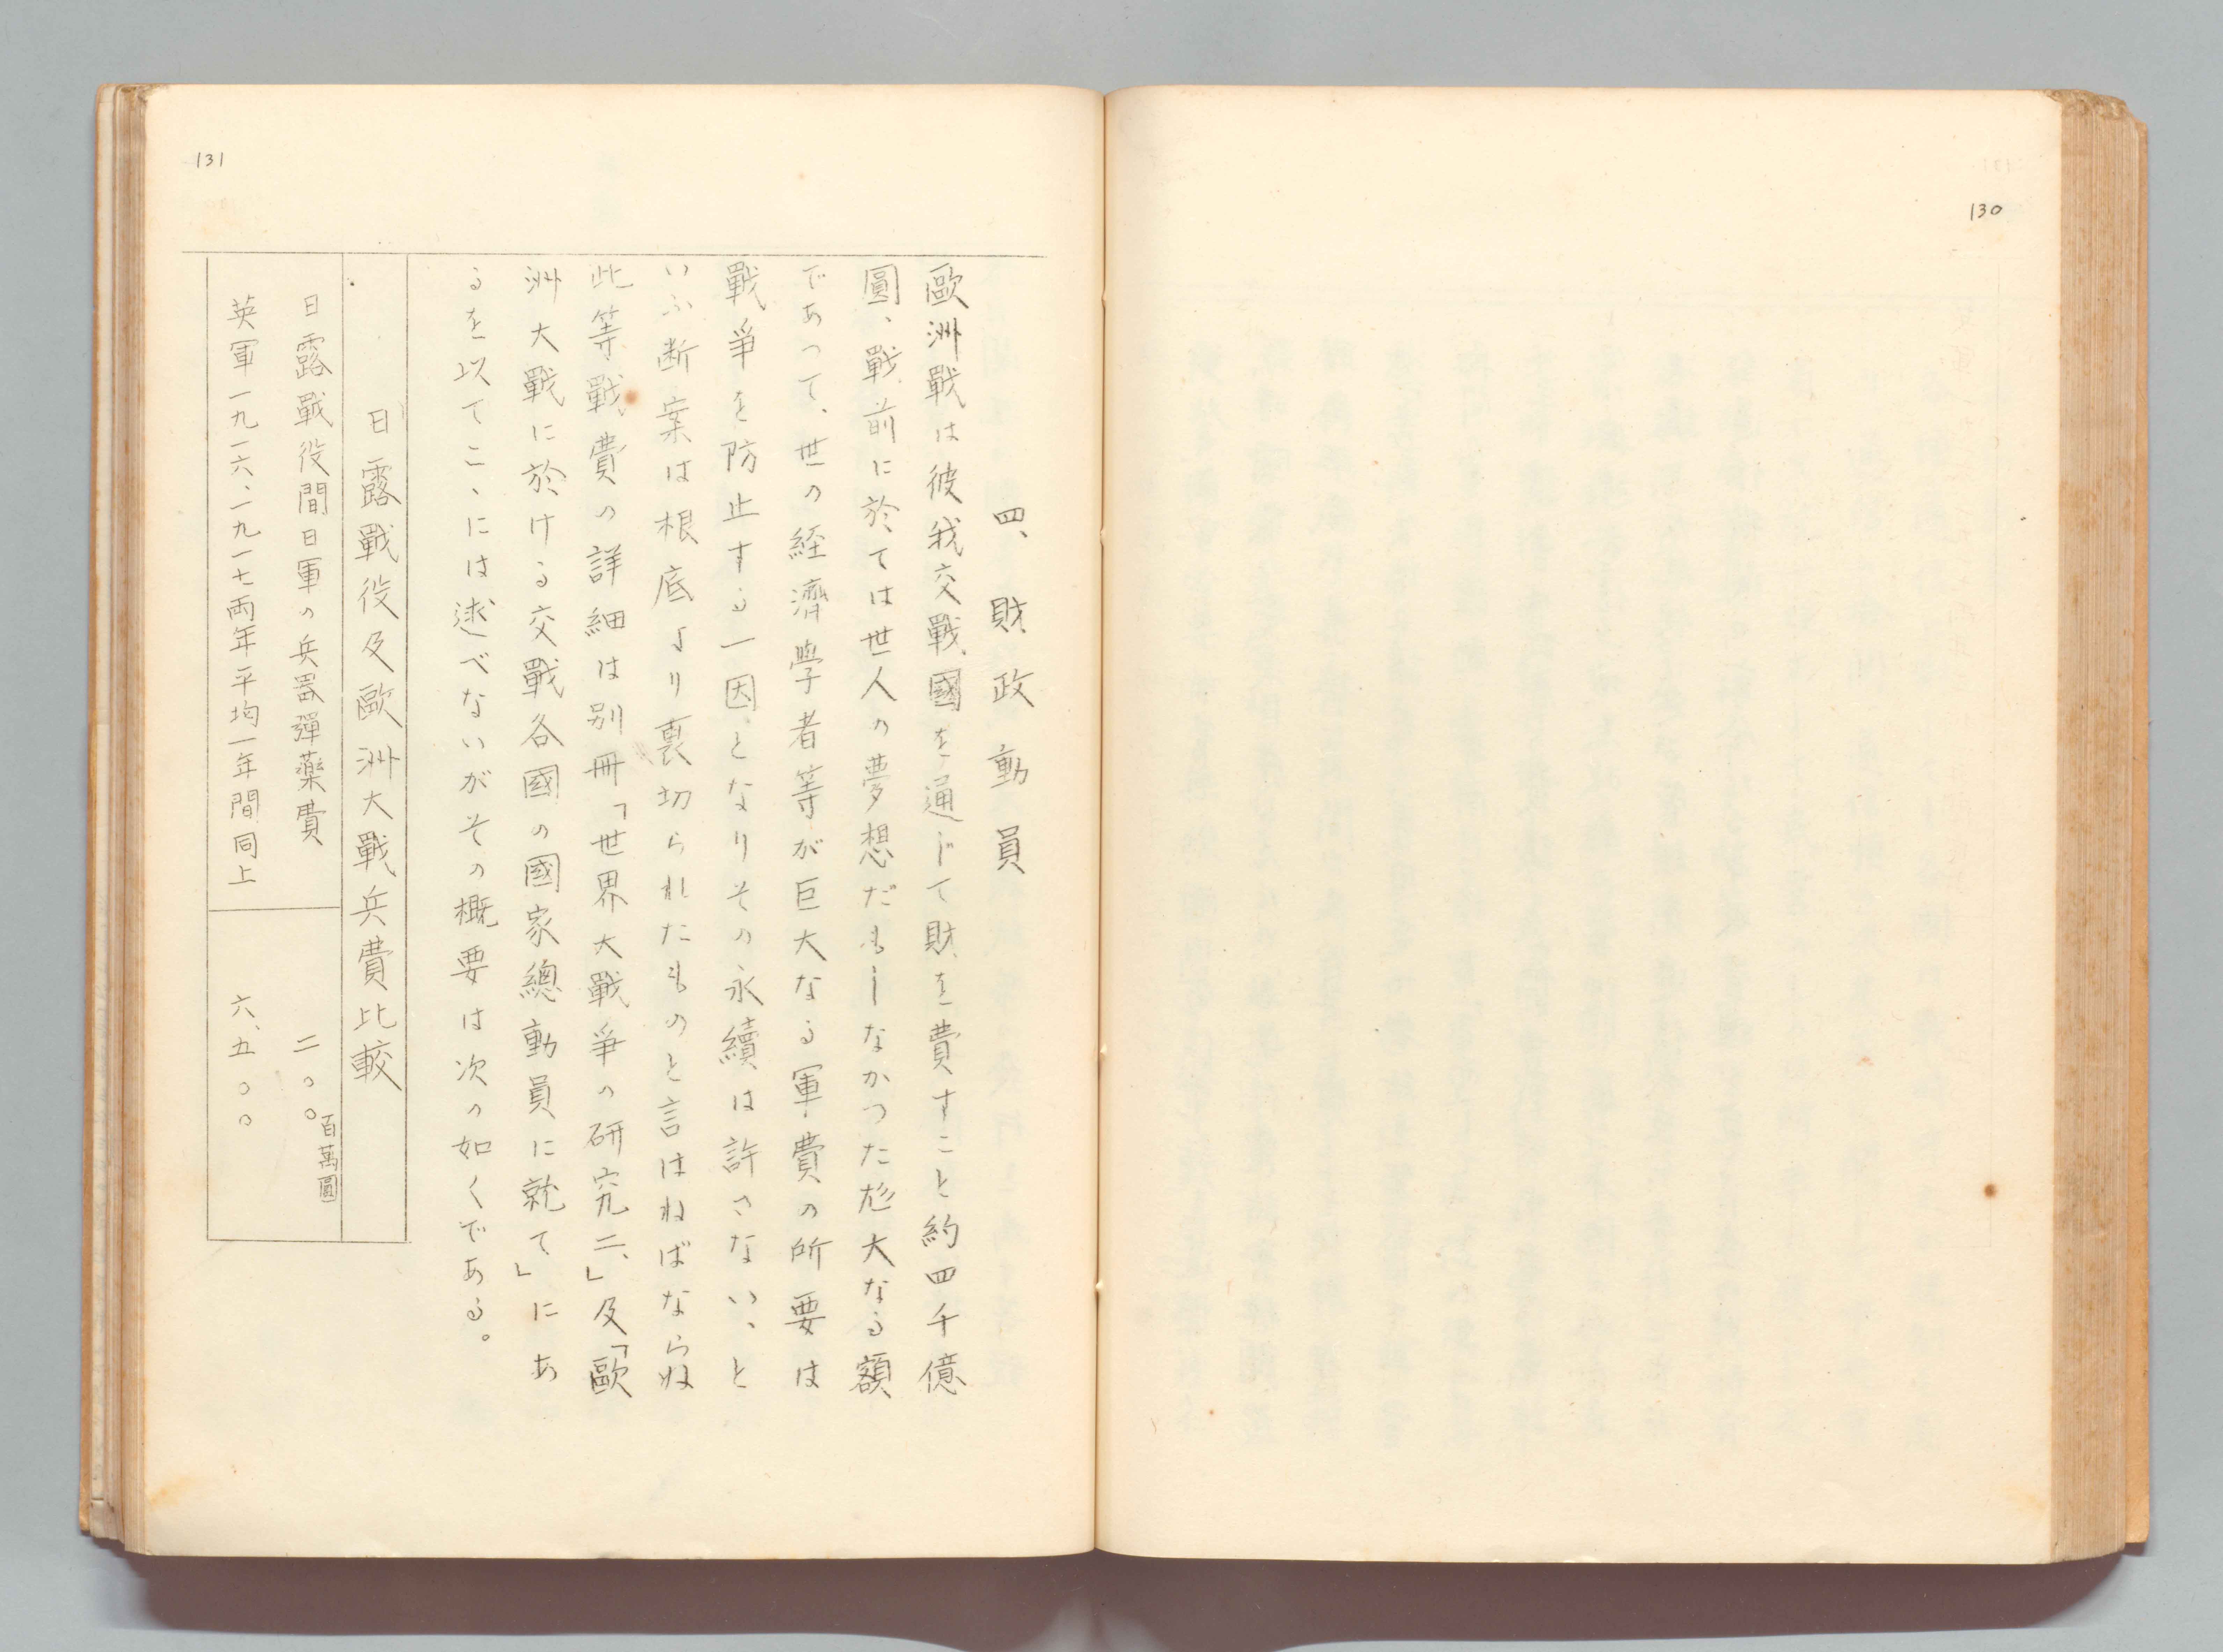 130
131
四、財政動員
歐洲戰は彼我交戰國を通じて財を費すこと約四千億
圓、戰前に於ては世人の夢想だもしなかつた尨大なる額
であつて、世の経濟學者等が巨大なる軍費の所要は
戰爭を防止する一因となりその永續は許さない、と
いふ断案は根底より裏切られたものと言はねばならぬ
此等戰費の詳細は別冊「世界大戰爭の研究二、」及「歐
洲大戰に於ける交戰各國の國家總動員に就て」にあ
るを以てこゝには述べないがその概要は次の如くである。
日露戰役及歐洲大戰兵費比較
日露戰役間日軍の兵器彈藥費 二〇〇百萬圓
英軍一九一六、一九一七両年平均一年間同上 六、五〇〇